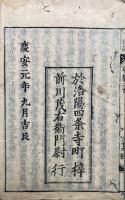 於洛陽四条寺町梓
前川茂右衛門尉行
慶安元年九月吉辰